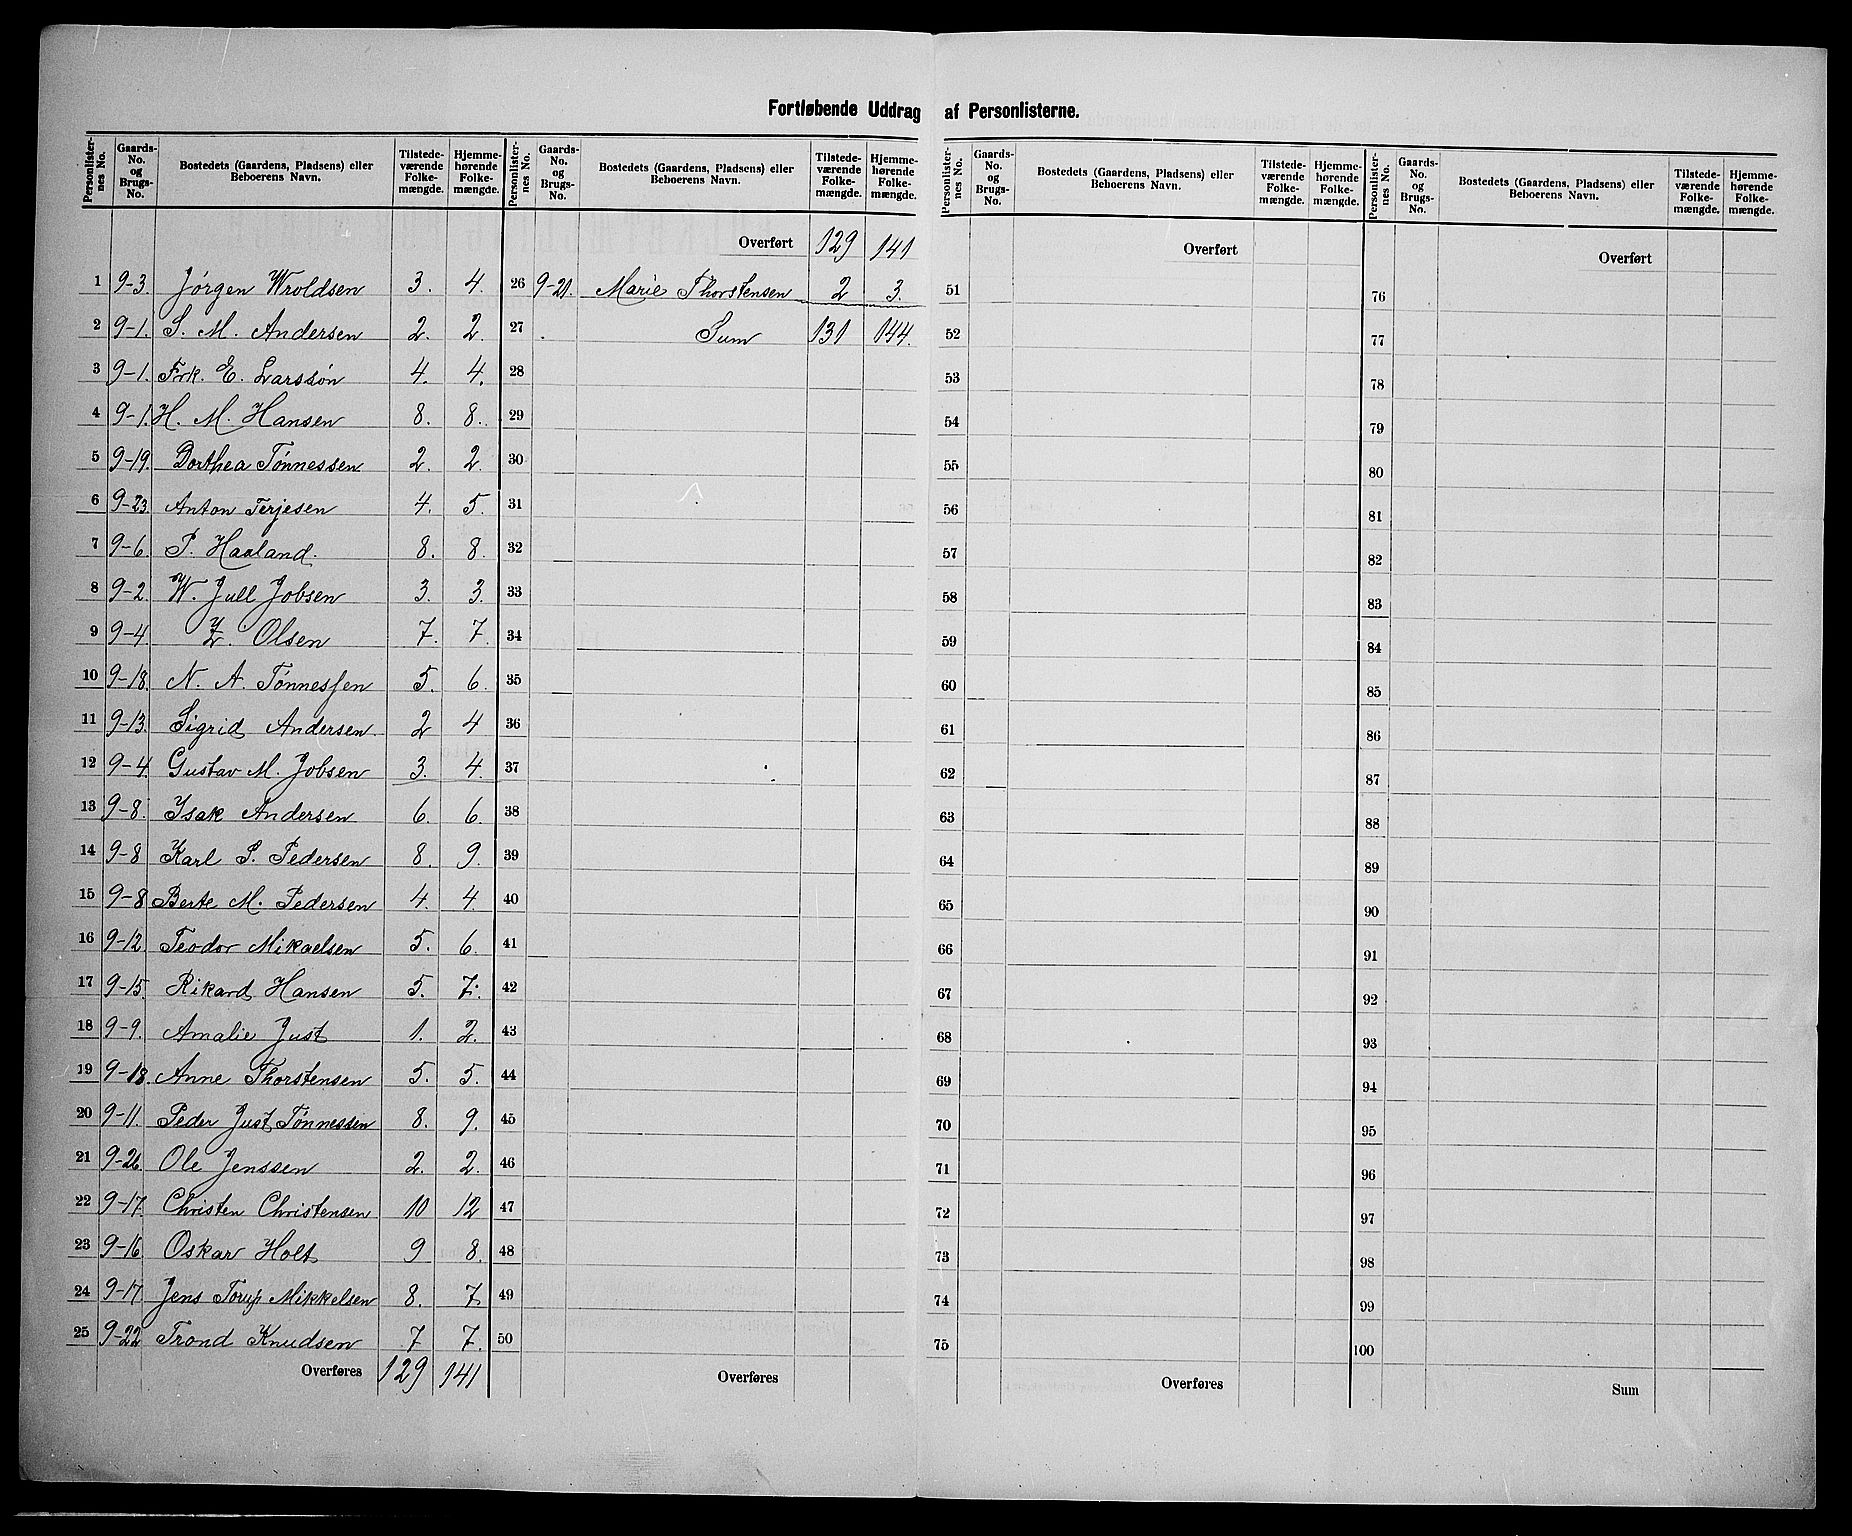 Fortløbende Uddrag af Personlisterne.
Personlister-nes No. | Gaards-No. og Brugs-No. | Bostedets (Gaardens, Pladsens) eller Beboerens Navn. | Tilstede-værende Folke-mængde. | Hjemme-hørende Folke-mængde.
Personlister-nes No. | Gaards-No. og Brugs-No. | Bostedets (Gaardens, Pladsens) eller Beboerens Navn. | Tilstede-værende Folke-mængde. | Hjemme-hørende Folke-mængde.
Personlister-nes No. | Gaards-No. og Brugs-No. | Bostedets (Gaardens, Pladsens) eller Beboerens Navn. | Tilstede-værende Folke-mængde. | Hjemme-hørende Folke-mængde.
Personlister-nes No. | Gaards-No. og Brugs-No. | Bostedets (Gaardens, Pladsens) eller Beboerens Navn. | Tilstede-værende Folke-mængde. | Hjemme-hørende Folke-mængde.
1 9-3. Jørgen Wroldsen 3. 4.
2 9-1. S. M. Andersen 2. 2.
3 9-1. Frk. E. Larssøn 4. 4.
4 9-1. H. M. Hansen 8. 8.
5 9-19. Dorthea Tønnessen 2. 2.
6 9-23. Anton Terjesen 4. 5.
7 9-6. P. Haaland. 8. 8.
8 9-2. W. Juell Jobsen 3. 3.
9 9-4. Z. Olsen 7. 7.
10 9-18. N. A. Tønnessen 5. 6.
11 9-13. Sigrid Andersen. 2 4
12 9-4 Gustav M. Jobsen 3. 4.
13 9-8. Isak Andersen 6. 6.
14 9-8 Karl P. Pedersen 8. 9.
15 9-8 Berte M. Pedersen 4. 4.
16 9-12. Teodor Mikaelsen 5. 6.
17 9-15. Rikard Hansen 5. 7.
18 9-9. Amalie Just 1. 2.
19 9-18. Anne Thorstensen 5. 5.
20 9-11. Peder Just Tønnessen 8. 9.
21 9-26. Ole Jenssen 2. 2.
22 9-17. Christen Christensen 10 12
23 9-16 Oskar Holt 9 8.
24 9-17 Jens Torup Mikkelsen 8. 7
25 9-22 Trond Knudsen 7 7.
Overføres 129 141
Overført 129 141
26 9-21. Marie Thorstensen 2 3.
27 Sum 131 144.
28
29
30
31
32
33
34
35
36
37
38
39
40
41
42
43
44
45
46
47
48
49
50
Overføres
Overført
51
52
53
54
55
56
57
58
59
60
61
62
63
64
65
66
67
68
69
70
71
72
73
74
75
Overføres
Overført
76
77
78
79
80
81
82
83
84
85
86
87
88
89
90
91
92
93
94
95
96
97
98
99
100
Sum